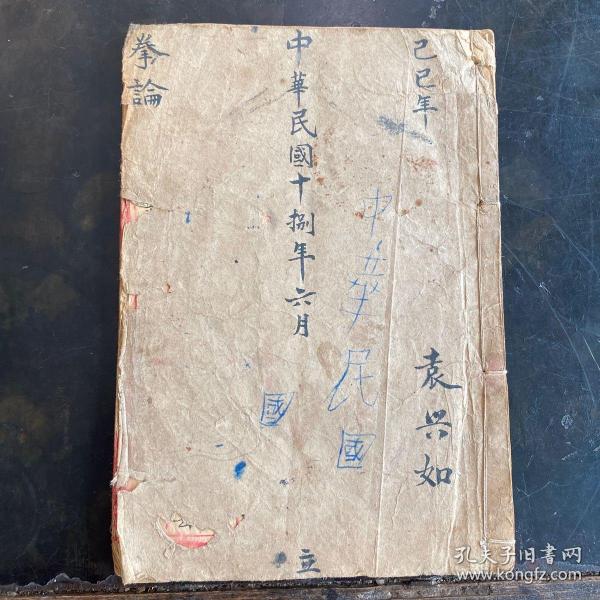 己巳年
袁兴如
中華民國
國
中華民國十捌年六月
立
拳論
孔夫子旧书网
www.kongfz.com